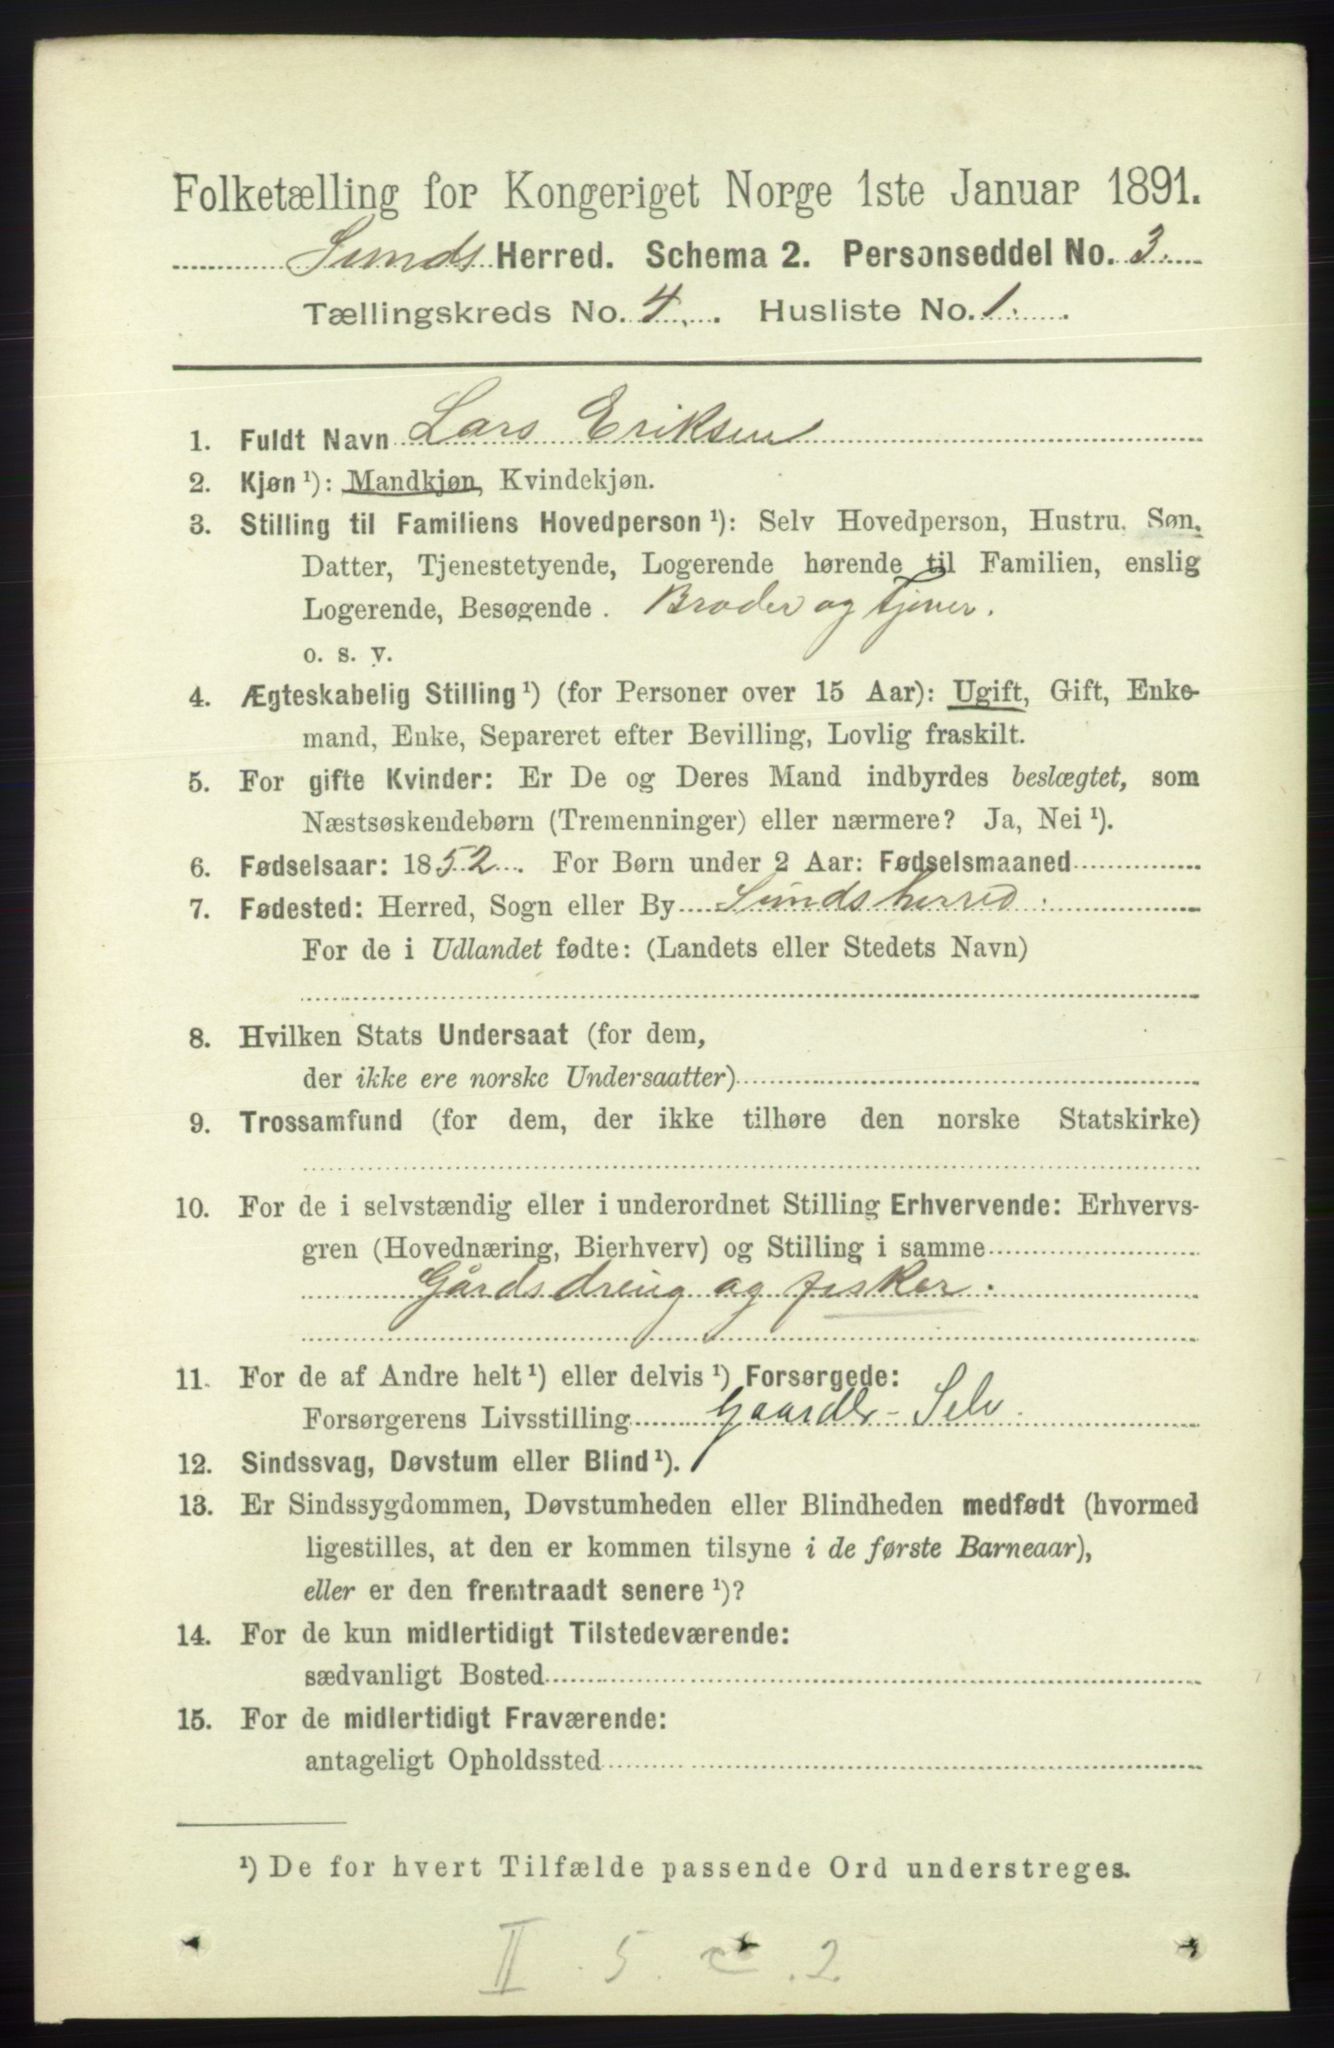 Folketælling for Kongeriget Norge 1ste Januar 1891.
Sunds Herred. Schema 2. Personseddel No. 3.
Tællingskreds No. 4. Husliste No. 1.
1. Fuldt Navn Lars Eriksen
2. Kjøn ¹): Mandkjøn, Kvindekjøn.
3. Stilling til Familiens Hovedperson ¹): Selv Hovedperson, Hustru, Søn,
Datter, Tjenestetyende, Logerende hørende til Familien, enslig
Logerende, Besøgende . Broder og tjener.
o. s. v.
4. Ægteskabelig Stilling ¹) (for Personer over 15 Aar): Ugift, Gift, Enke-
mand, Enke, Separeret efter Bevilling, Lovlig fraskilt.
5. For gifte Kvinder: Er De og Deres Mand indbyrdes beslægtet, som
Næstsøskendebørn (Tremenninger) eller nærmere? Ja, Nei ¹).
6. Fødselsaar: 1852. For Børn under 2 Aar: Fødselsmaaned
7. Fødested: Herred, Sogn eller By Sunds herred.
For de i Udlandet fødte: (Landets eller Stedets Navn)
8. Hvilken Stats Undersaat (for dem,
der ikke ere norske Undersaatter)
9. Trossamfund (for dem, der ikke tilhøre den norske Statskirke)
10. For de i selvstændig eller i underordnet Stilling Erhvervende: Erhvervs-
gren (Hovednæring, Bierhverv) og Stilling i samme
Gårdsdreng og fisker.
11. For de af Andre helt ¹) eller delvis ¹) Forsørgede:
Forsørgerens Livsstilling Gaardbr - Selv.
12. Sindssvag, Døvstum eller Blind ¹).
13. Er Sindssygdommen, Døvstumheden eller Blindheden medfødt (hvormed
ligestilles, at den er kommen tilsyne i de første Barneaar),
eller er den fremtraadt senere ¹)?
14. For de kun midlertidigt Tilstedeværende:
sædvanligt Bosted
15. For de midlertidigt Fraværende:
antageligt Opholdssted
¹) De for hvert Tilfælde passende Ord understreges.
II . 5 . c . 2